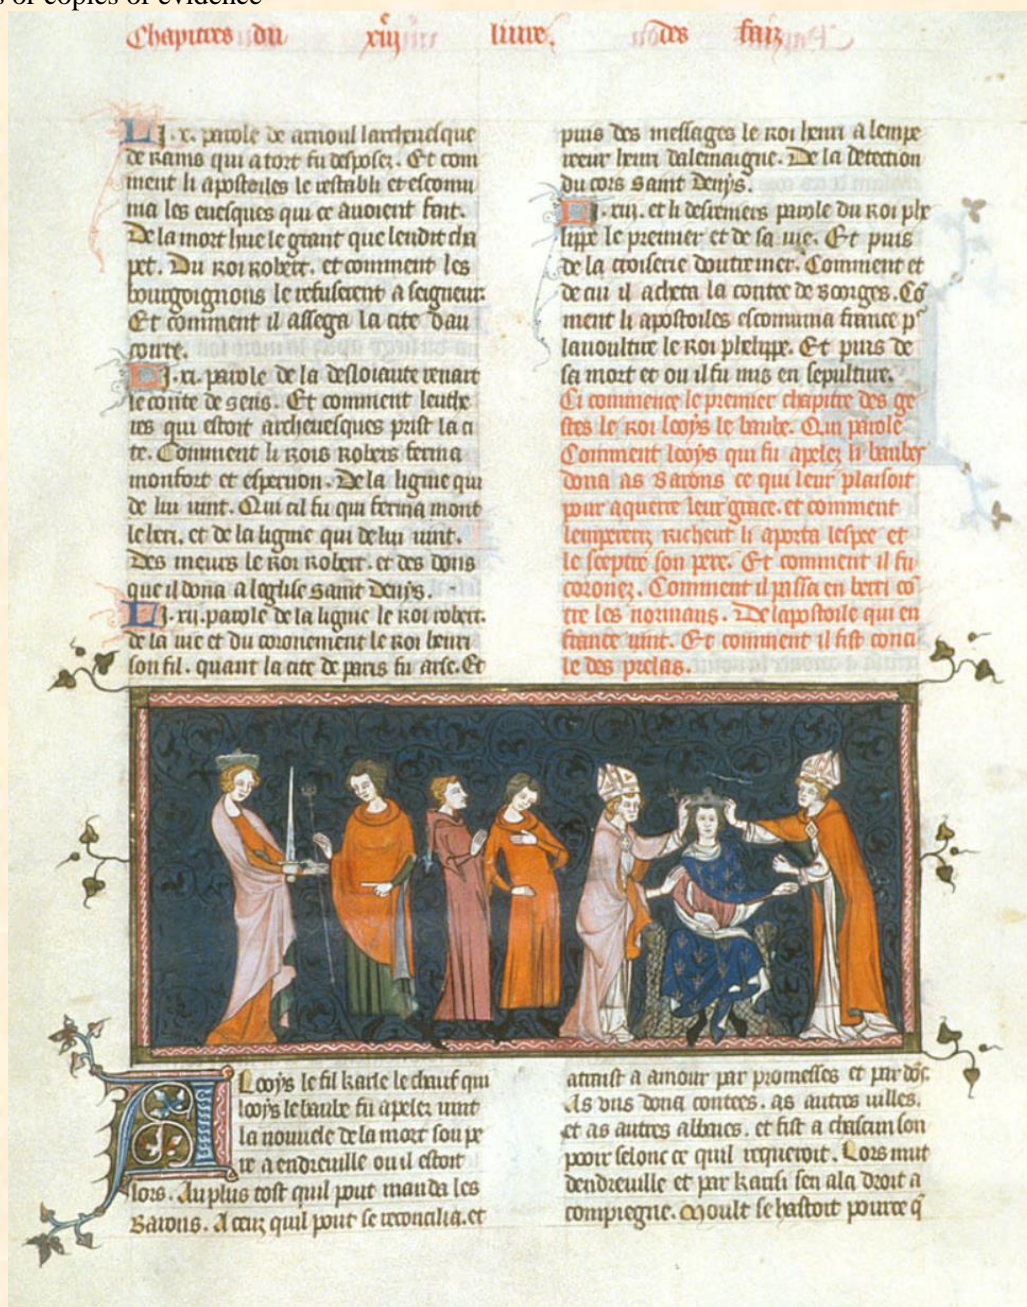 s or copies of evidence
Chapitres du xiij liure. des faiz
LI .x. parole de arnoul larcheuesque
de rains qui a tort fu desposez. Et com
ment li apostoiles le restabli et escomu
nia les euesques qui ce auoient fait.
De la mort hue le grant que len dit cha
pet. Du roi robert. et comment les
bourgoignons le refuserent a seigneur.
Et comment il assega la cite dau
conte.
LI .xi. parole de la desloiaute renart
le conte de sens. Et comment leuthe
res qui estoit archeuesques prist la ci
te. Comment li rois robers ferma
monfort et espernon. De la lignie qui
de lui uint. Qui cil fu qui ferma mont
leheri. et de la lignie qui de lui uint.
Des meurs le roi robert. et des dons
que il dona a leglise saint denys.
LI .xii. parole de la lignie le roi robert.
de la uie et du coronement le roi henri
son fil. quant la cite de paris fu arse. Et
puis des messages le roi henri a lempe
reeur henri dalemaigne. De la detection
du cors saint denys.
LI .xiij. et li desreniers parole du roi phe
lippe le premier et de sa uie. Et puis
de la croiserie doutremer. Comment et
de cui il acheta la contee de boorges. Co
ment li apostoiles escomunia france pr
lauoultire le roi phelippe. Et puis de
sa mort et ou il fu mis en sepulture.
Ci commence le premier chapitre des ge
stes le roi looys le baube. Qui parole
Comment looys qui fu apelez li baubes
dona as barons ce qui leur plaisoit
pour aquerre leur grace. et comment
lempereriz richeut li aporta lespee et
le sceptre son pere. Et comment il fu
coronez. Comment il passa en berri co
tre les normans. De lapostoile qui en
france uint. Et comment il fist conci
le des prelas.
Looys le fil karle le chauf qui
looys le baube fu apelez uint
la nouuele de la mort son pe
re a endreuille ou il estoit
lors. Au plus tost quil pout manda les
barons. A ceuz quil pout se reconcilia. et
atraist a amour par promesses et par dos.
As uns dona contees. as autres uilles.
et as autres abbaies. et fist a chascun son
pooir selonc ce quil requeroit. Lors mut
dendreuille et par kausi sen ala droit a
compiegne. Moult se hastoit pource q